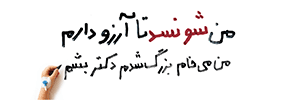 من شونسدتا آرزو دارم
من می خام بزرگ شدم دکتر بشم